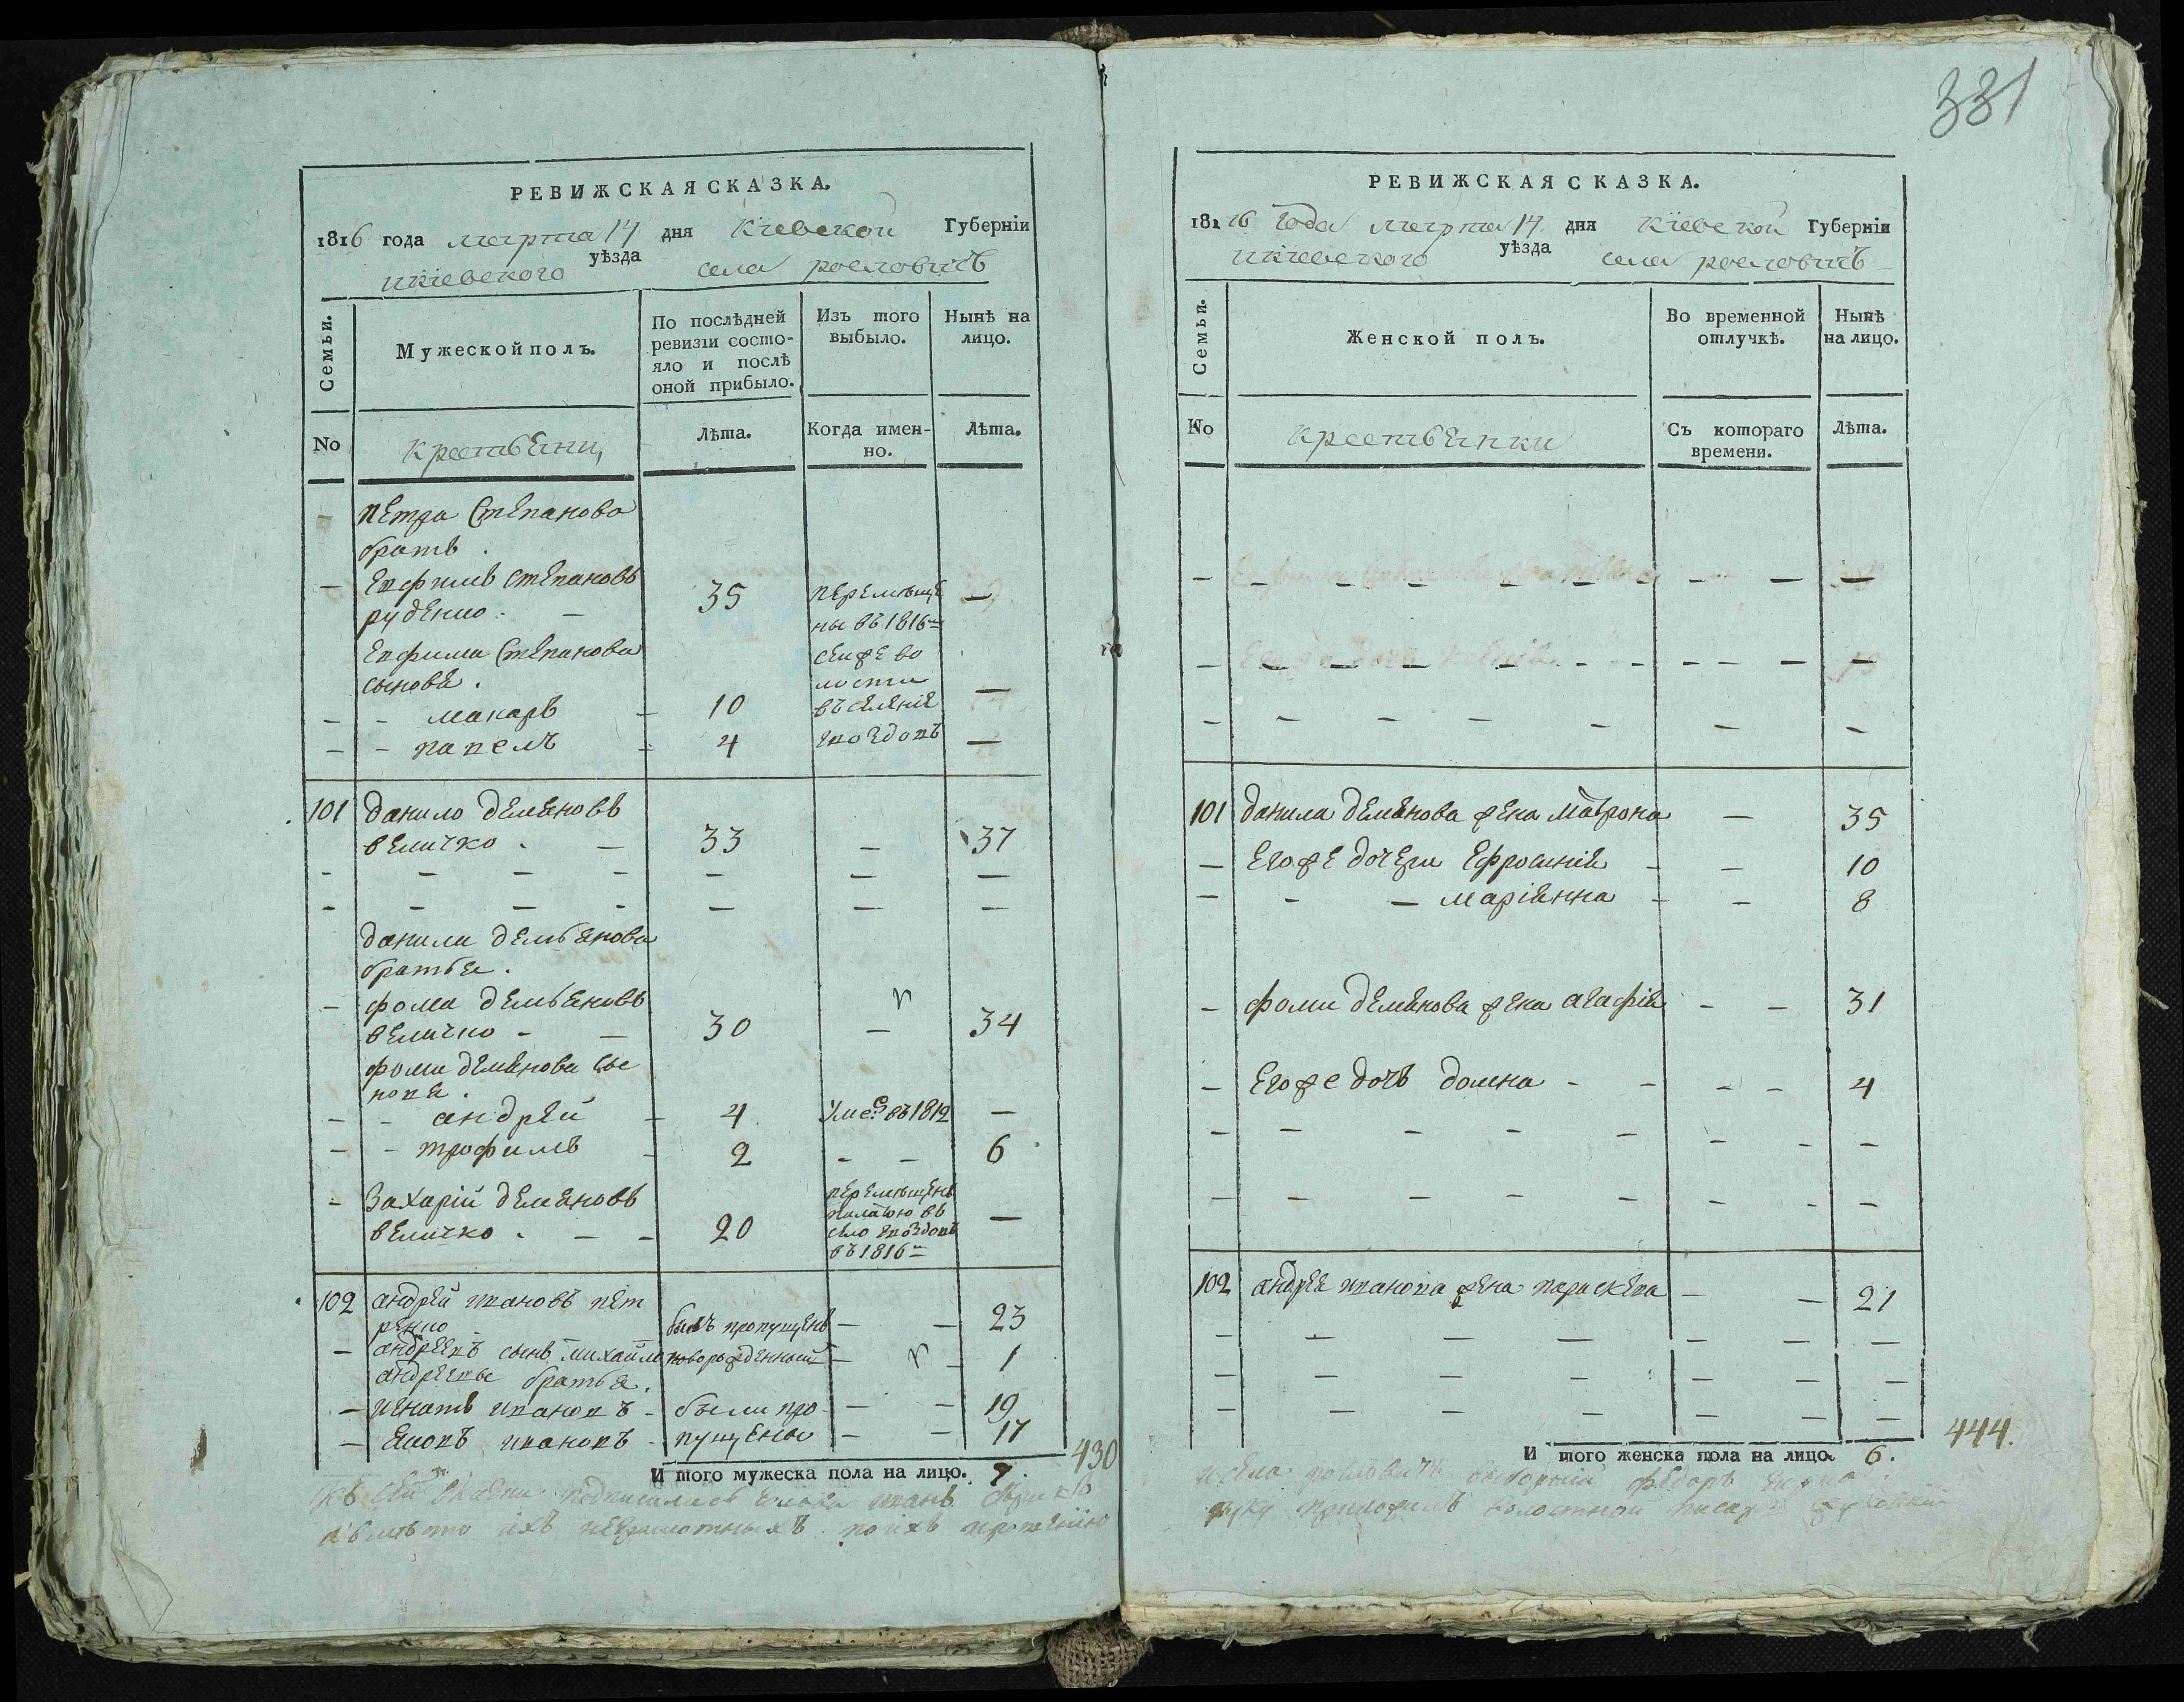 331
РЕВИЖСКАЯ СКАЗКА.
1816 года марта 14 дня Кіевской Губерніи
икіевского уѣзда села рословичъ
Семьи.
Мужеской полъ.
По послѣдней ревизіи состояло и послѣ оной прибыло.
Изъ того выбыло.
Нынѣ на лицо.
No
крестьяни,
Лѣта.
Когда именно.
Лѣта.
петра Степанова
братъ.
— Евфимъ степановъ
руденко. — 35 перемѣще —
ны въ 1816м
Евфима Степанова
сыновя.
— - макаръ - 10 —
въ селеніе
— - павелъ - 4 гвоздовъ —
101 данило демяновъ
величко. — 33 — 37
- — — - — — —
- — — - — — —
данила демьянова
братья.
— фома демьяновъ
величко - — 30 — 34
фоми демянова сы
новя.
— - андрей - 4 Уме: въ 1812 —
— - трофимъ - 2 - — 6
- Захарій демяновъ
величко. — - 20 —
перемѣщенъ
въ
село гвоздовъ
въ 1816м
102 андрей ивановъ пет
ренко былъ пропущенъ — — 23
— андреевъ сынъ михайло новорожденный — — 1
андреевы братья.
— игнатъ ивановъ - были про — — 19
— яковъ ивановъ - пущены — — 17
И того мужеска пола на лицо. 7.
430
къ сей скаски подписался иванъ
вмѣсто ихъ неграмотныхъ по ихъ прошенію
РЕВИЖСКАЯ СКАЗКА.
1816 года марта 14 дня Кіевской Губерніи
икіевского уѣзда села рословичъ
Семьи.
Женской полъ.
Во временной отлучкѣ.
Нынѣ на лицо.
No
крестьянки
Съ котораго времени.
Лѣта.
101 данила демянова жена матрона — 35
— Его же дочери Ефросинія - — 10
- - — маріянна - - 8
- фоми демянова жена агафія - - 31
- Его же дочъ домна - - - - 4
102 андрея иванова жена параскева — — 21
И того женска пола на лицо. 6.
444.
исела рословичъ виборній федоръ
руку приложилъ волостной писаръ